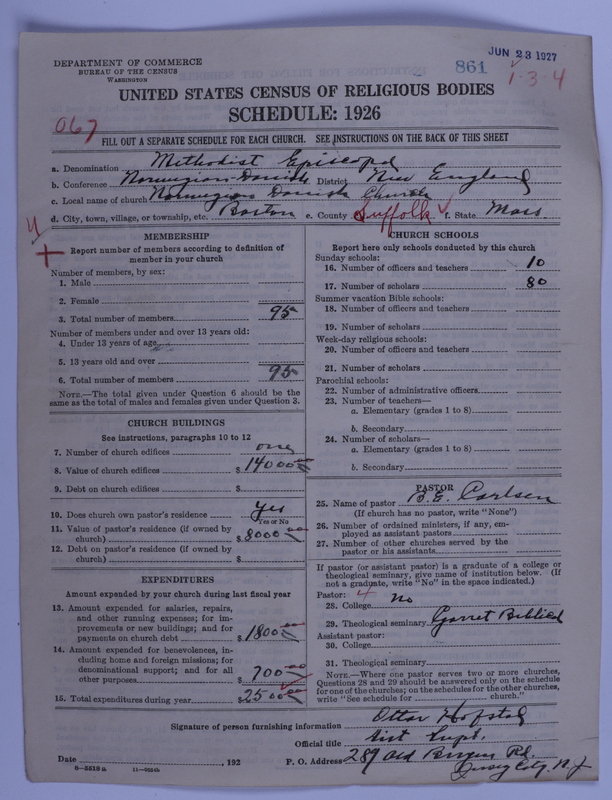 DEPARTMENT OF COMMERCE
BUREAU OF THE CENSUS
WASHINGTON
JUN 23 1927
861
1-3-4
UNITED STATES CENSUS OF RELIGIOUS BODIES
SCHEDULE: 1926
067
FILL OUT A SEPARATE SCHEDULE FOR EACH CHURCH. SEE INSTRUCTIONS ON THE BACK OF THIS SHEET
a. Denomination Methodist Episcopal
b. Conference Norwegian-Danish District New England
c. Local name of church Norwegian Danish Church
d. City, town, village, or township, etc. Boston e. County Suffolk f. State Mass
4
MEMBERSHIP
Report number of members according to definition of
member in your church
Number of members, by sex:
1. Male
2. Female
3. Total number of members 95
Number of members under and over 13 years old:
4. Under 13 years of age
5. 13 years old and over
6. Total number of members 95
NOTE.—The total given under Question 6 should be
same as the total of males and females given under Question 3.
CHURCH BUILDINGS
See instructions, paragraphs 10 to 12
7. Number of church edifices one
8. Value of church edifices $14000 00
9. Debt on church edifices $
10. Does church own pastor's residence yes
Yes or No
11. Value of pastor's residence (if owned by
church) $8000 00
12. Debt on pastor's residence (if owned by
church) $
EXPENDITURES
Amount expended by your church during last fiscal year
13. Amount expended for salaries, repairs,
and other running expenses; for im-
provements or new buildings; and for
payments on church debt $1800
14. Amount expended for benevolences, in-
cluding home and foreign missions; for
denominational support; and for all
other purposes $700 00
15. Total expenditures during year $2500 00
CHURCH SCHOOLS
Report here only schools conducted by this church
Sunday schools:
16. Number of officers and teachers 10
17. Number of scholars 80
Summer vacation Bible schools:
18. Number of officers and teachers
19. Number of scholars
Week-day religious schools:
20. Number of officers and teachers
21. Number of scholars
Parochial schools:
22. Number of administrative officers
23. Number of teachers—
a. Elementary (grades 1 to 8)
b. Secondary
24. Number of scholars—
a. Elementary (grades 1 to 8)
b. Secondary
PASTOR
25. Name of pastor B. E. Carlsen
(If church has no pastor, write "None")
26. Number of ordained ministers, if any, em-
ployed as assistant pastors
27. Number of other churches served by the
pastor or his assistants
If pastor (or assistant pastor) is a graduate of a college or
theological seminary, give name of institution below. (If
not a graduate, write "No" in the space indicated.)
Pastor: 4
28. College No
29. Theological seminary Garret Biblical
Assistant pastor:
30. College
31. Theological seminary
NOTE.—Where one pastor serves two or more churches,
Questions 28 and 29 should be answered only on the schedule
for one of the churches; on the schedules for the other churches,
write "See schedule for church."
Signature of person furnishing information Ottar Hofstad
Official title Dist Supt.
Date , 192 P. O. Address 289 Old Bergen Rd.
8-5512a 11-9524b Jersey City, N. J